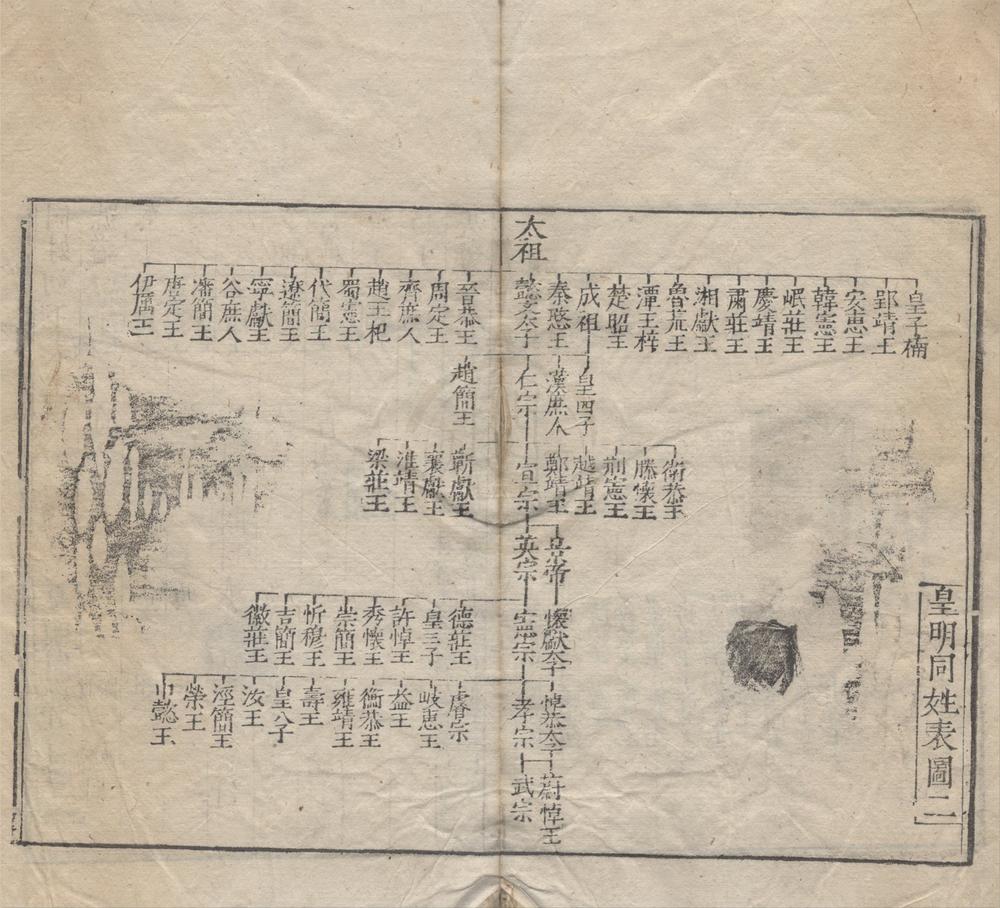 皇明同姓表圖二
太祖
皇子楠
郢靖王
安惠王
韓憲王
岷莊王
慶靖王
肅莊王
湘獻王
魯荒王
潭王梓
楚昭王
成祖
秦愍王
懿文太子
晉恭王
周定王
齊庶人
趙王杞
蜀憲王
代簡王
遼簡王
寧獻王
谷庶人
瀋簡王
唐定王
伊厲王
皇四子
漢庶人
仁宗
趙簡王
衛恭王
滕懷王
荊憲王
越靖王
鄭靖王
宣宗
蘄獻王
襄獻王
淮靖王
梁莊王
景帝
英宗
懷獻太子
憲宗
德莊王
皇三子
許悼王
秀懷王
崇簡王
忻穆王
吉簡王
徽莊王
悼恭太子
孝宗
睿宗
岐惠王
益王
衡恭王
雍靖王
壽王
皇八子
汝王
涇簡王
榮王
懿王
蔚悼王
武宗